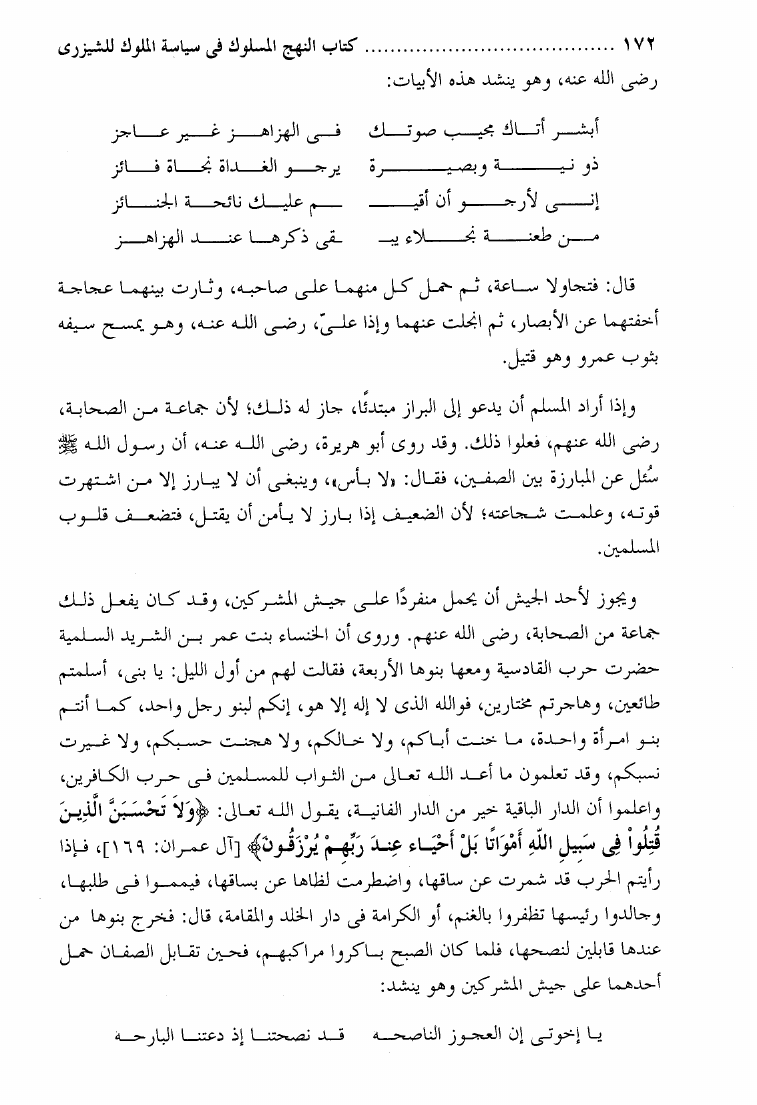 ١٧٢ ........................................ كتاب النهج المسلوك فى سياسة الملوك للشيزرى
رضى الله عنه، وهو ينشد هذه الأبيات:
أبشر أتاك مجيب صوتك فى الهزاهز غير عاجز
ذو نية وبصيرة يرجو الغداة نجاة فائز
إنى لأرجو أن أقيـ ـم عليك نائحة الجنائز
من طعنة نجلاء يبـ ـقى ذكرها عند الهزاهز
قال: فتجاولا ساعة، ثم حمل كل منهما على صاحبه، وثارت بينهما عجاجة
أخفتهما عن الأبصار، ثم انجلت عنهما وإذا علىّ، رضى الله عنه، وهو يمسح سيفه
بثوب عمرو وهو قتيل.
وإذا أراد المسلم أن يدعو إلى البراز مبتدئًا، جاز له ذلك؛ لأن جماعة من الصحابة،
رضى الله عنهم، فعلوا ذلك. وقد روى أبو هريرة، رضى الله عنه، أن رسول الله ﷺ
سُئل عن المبارزة بين الصفين، فقال: «لا بأس»، وينبغى أن لا يبارز إلا من اشتهرت
قوته، وعلمت شجاعته؛ لأن الضعيف إذا بارز لا يأمن أن يقتل، فتضعف قلوب
المسلمين.
ويجوز لأحد الجيش أن يحمل منفردًا على جيش المشركين، وقد كان يفعل ذلك
جماعة من الصحابة، رضى الله عنهم. وروى أن الخنساء بنت عمر بن الشريد السلمية
حضرت حرب القادسية ومعها بنوها الأربعة، فقالت لهم من أول الليل: يا بنى، أسلمتم
طائعين، وهاجرتم مختارين، فوالله الذى لا إله إلا هو، إنكم لبنو رجل واحد، كما أنتم
بنو امرأة واحدة، ما خنت أباكم، ولا خالكم، ولا هجنت حسبكم، ولا غيرت
نسبكم، وقد تعلمون ما أعد الله تعالى من الثواب للمسلمين فى حرب الكافرين،
واعلموا أن الدار الباقية خير من الدار الفانية، يقول الله تعالى: ﴿وَلاَ تَحْسَبَنَّ الَّذِينَ
قُتِلُواْ فِى سَبِيلِ اللَّهِ أَمْوَاتًا بَلْ أَحْيَاء عِندَ رَبِّهِمْ يُرْزَقُونَ﴾ [آل عمران: ١٦٩]، فإذا
رأيتم الحرب قد شمرت عن ساقها، واضطرمت لظاها عن بساقها، فيمموا فى طلبها،
وجالدوا رئيسها تظفروا بالغنم، أو الكرامة فى دار الخلد والمقامة، قال: فخرج بنوها من
عندها قابلين لنصحها، فلما كان الصبح باكروا مراكبهم، فحين تقابل الصفان حمل
أحدهما على جيش المشركين وهو ينشد:
يا إخوتى إن العجوز الناصحه قد نصحتنا إذ دعتنا البارحه